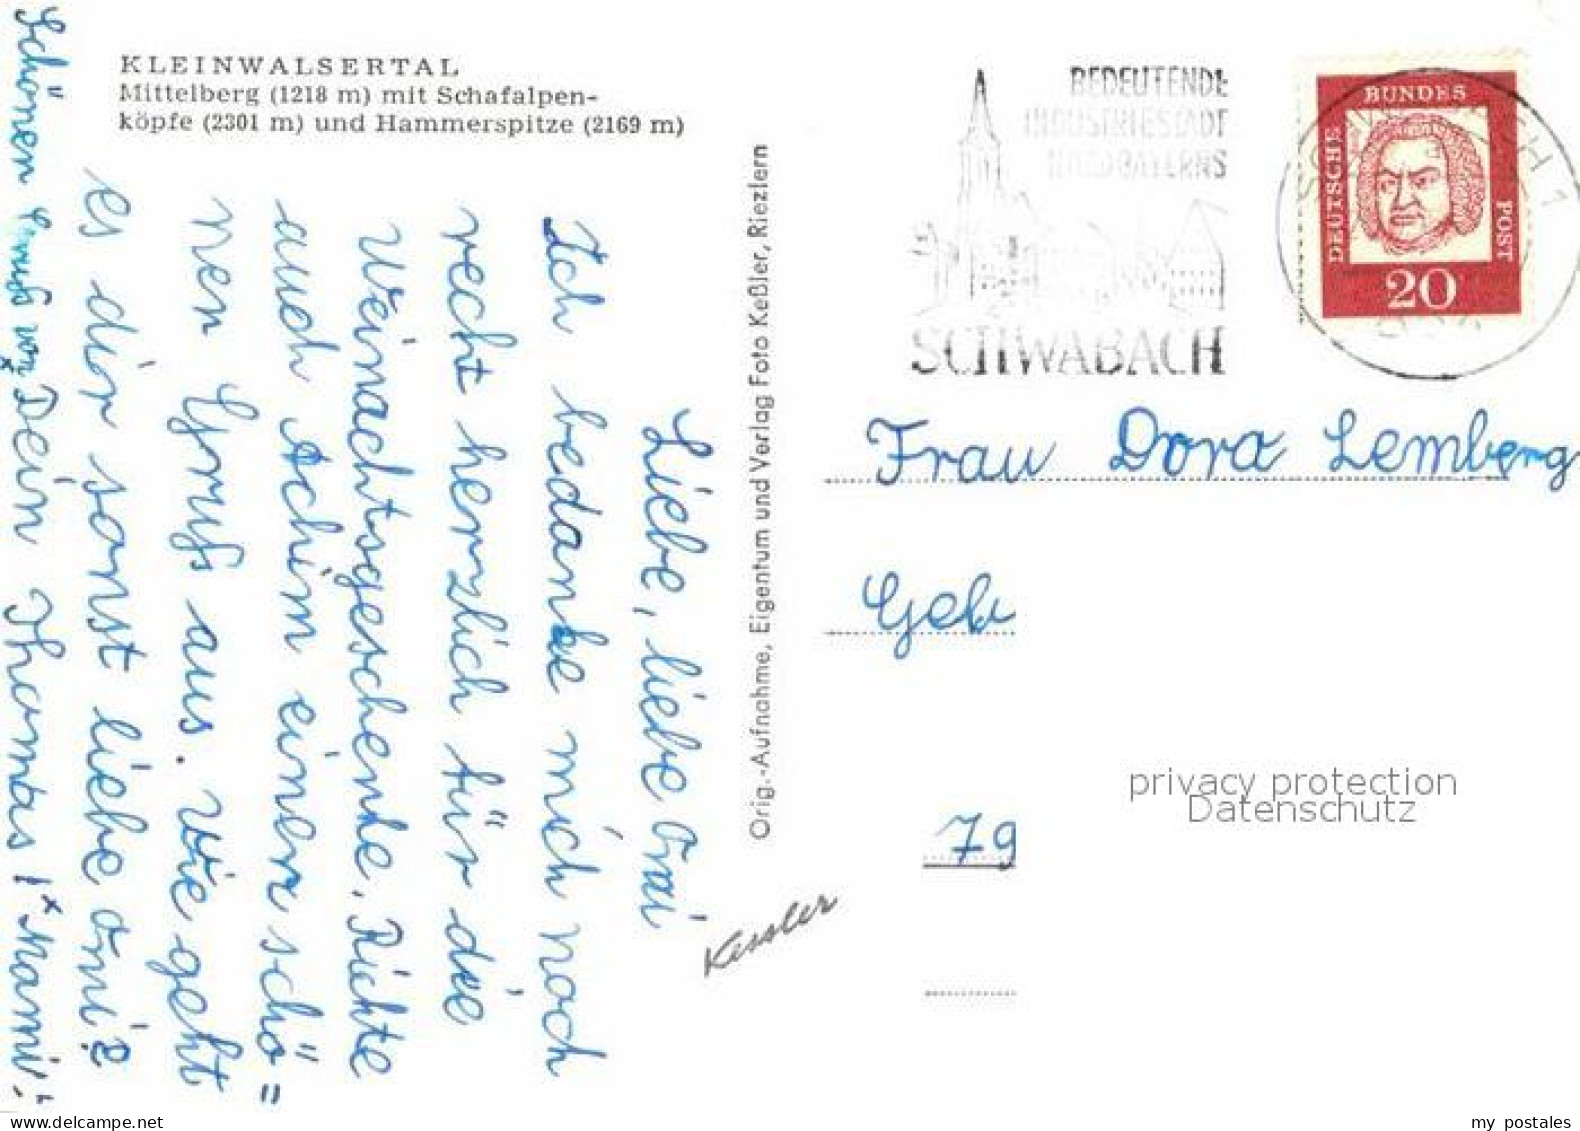 KLEINWALSERTAL
Mittelberg (1218 m) mit Schafalpen-
köpfe (2301 m) und Hammerspitze (2169 m)
Liebe, liebe Omi
Ich bedanke mich noch
recht herzlich für die
Weinachtsgeschenke. Richte
auch Achim einen schö=
nen Gruß aus. Wie geht
es dir sonst liebe Omi?
Dein Thomas!
Schönen Gruß von "Mami"
Orig.-Aufnahme, Eigentum und Verlag Foto Keßler, Riezlern
Kessler
BEDEUTENDE
INDUSTRIESTADT
NORDBAYERNS
SCHWABACH
DEUTSCHE
BUNDES
POST
20
Frau Dora Lemberg
Geb
79
privacy protection
Datenschutz
www.delcampe.net
my_postales